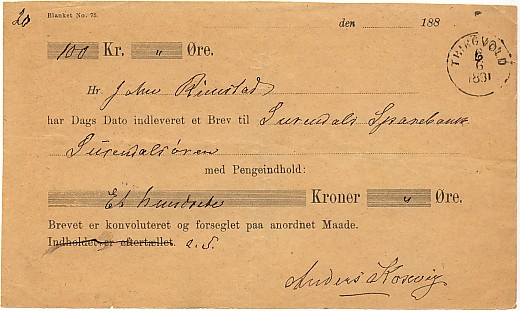 20
Blanket No. 75.
den 188
100 Kr. " Øre.
TRIEGVOLD
6
6
1831
Hr. John Rimstad
har Dags Dato indleveret et Brev til Surendals Sparebank
Surendalsøren
med Pengeindhold:
Et hundrede Kroner " Øre.
Brevet er konvoluteret og forseglet paa anordnet Maade.
Indholdet er eftertællet. e. s.
Anders Koxvig